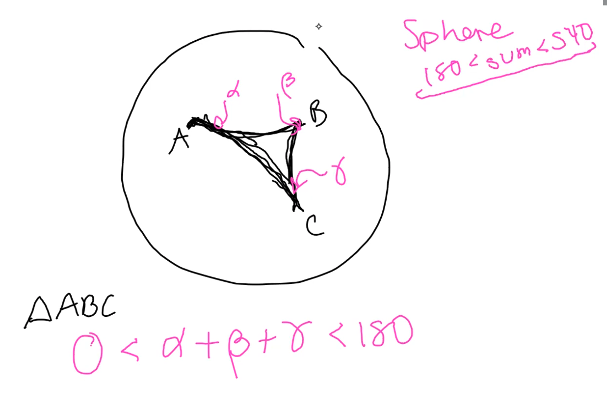 Sphere
180 < sum < 540
α
β
A
B
γ
C
△ABC
0 < α + β + γ < 180